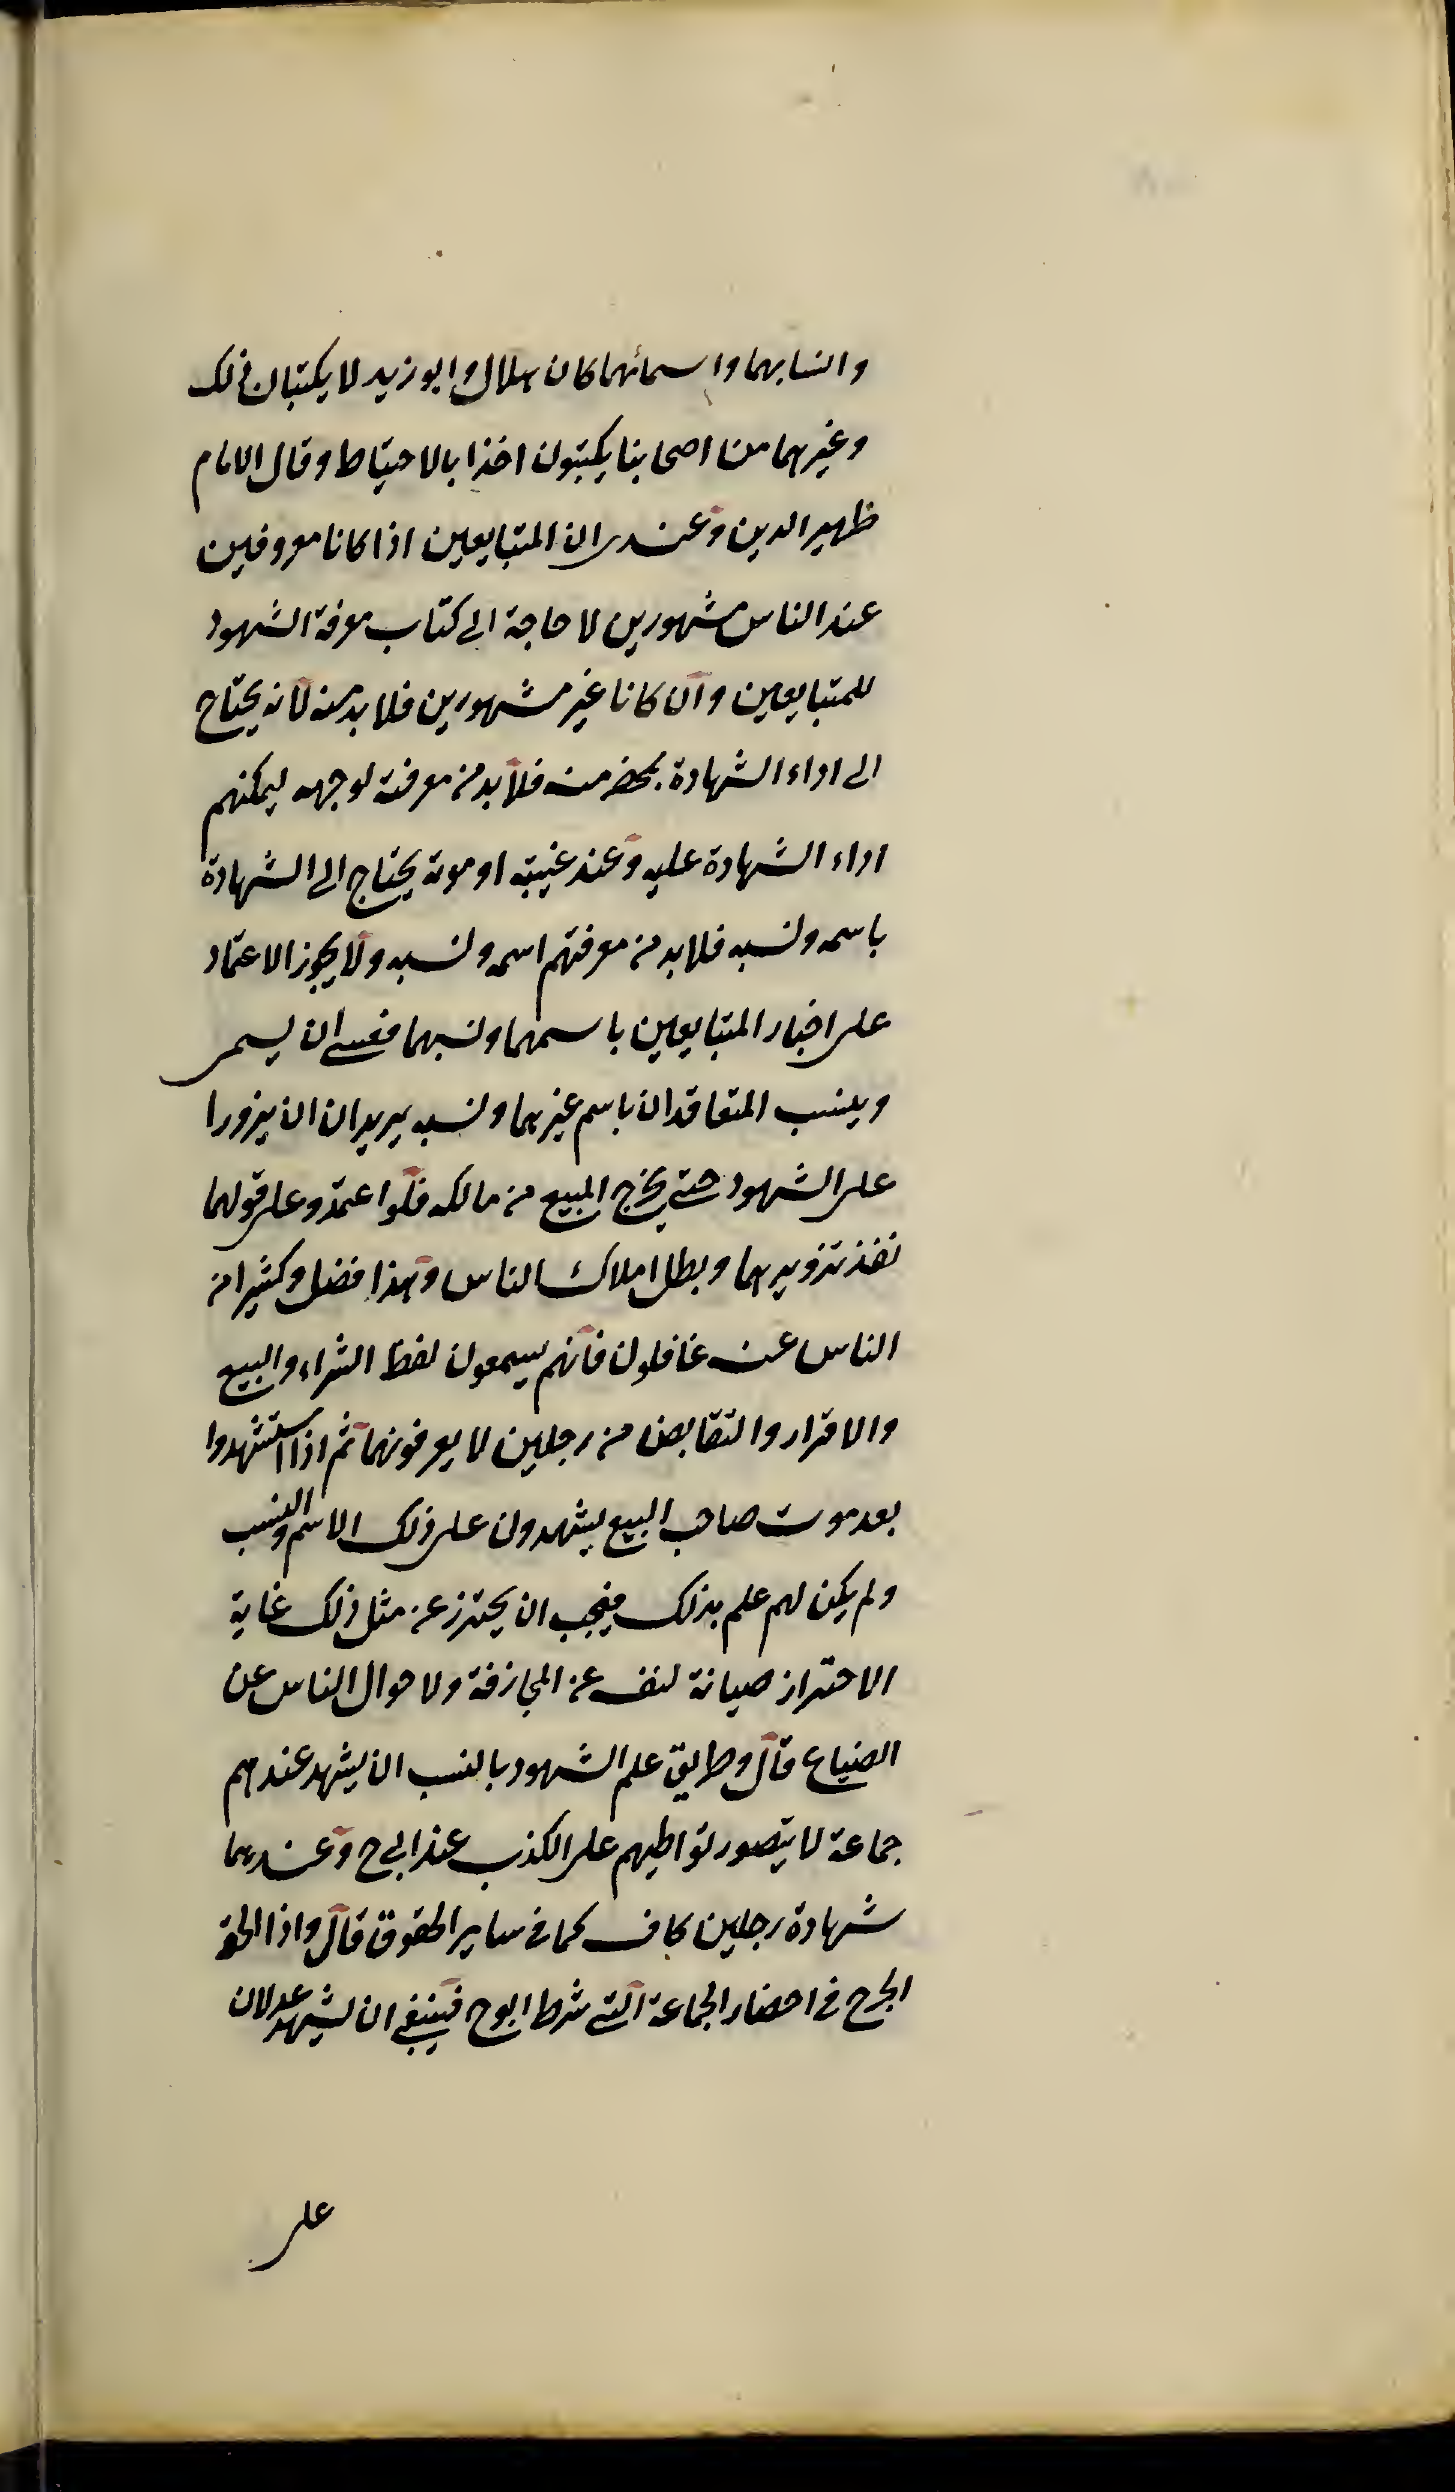 وانسابهما واسمائهما كان هلال وابو زيد لا يكتبان ذلك
وغيرهما من اصحابنا يكتبون اخذا بالاحتياط وقال الامام
ظهير الدين وعندى ان المتبايعين اذا كانا معروفين
عند الناس مشهورين لا حاجة الى كتاب معرفة الشهود
للمتبايعين وان كانا غير مشهورين فلا بد منه لانه يحتاج
الى اداء الشهادة بمحضر منه فلا بد من معرفته لوجهه ليمكنهم
اداء الشهادة عليه وعند غيبته او موته يحتاج الى الشهادة
باسمه ونسبه فلا بد من معرفتهم اسمه ونسبه ولا يجوز الاعتماد
على اخبار المتبايعين باسمهما ونسبهما فعسى ان يسمى
وينسب المتعاقدان باسم غيرهما ونسبه يريدان ان يزورا
على الشهود حتى يخرج المبيع من مالكه فلو اعتمدوا على قولهما
نفذ تزويرهما وبطل املاك الناس وهذا فضل وكثيرا من
الناس عنه غافلون فانهم يسمعون لفظ الشراء والبيع
والاقرار والتقابض من رجلين لا يعرفونهما ثم اذا استشهدوا
بعد موت صاحب البيع يشهدون على ذلك الاسم والنسب
ولم يكن لهم علم بذلك فيجب ان يحترز عن مثل ذلك غاية
الاحتراز صيانة لنفسه عن المجازفة ولاحوال الناس عن
الضياع قال وطريق علم الشهود بالنسب ان يشهد عندهم
جماعة لا يتصور تواطيهم على الكذب عند ابى ح وعندهما
شهادة رجلين كاف كما فى ساير الحقوق قال واذا لحقه
الحرج فى احضار الجماعة التى شرط ابو ح فينبغى ان يشهد عدلان
على